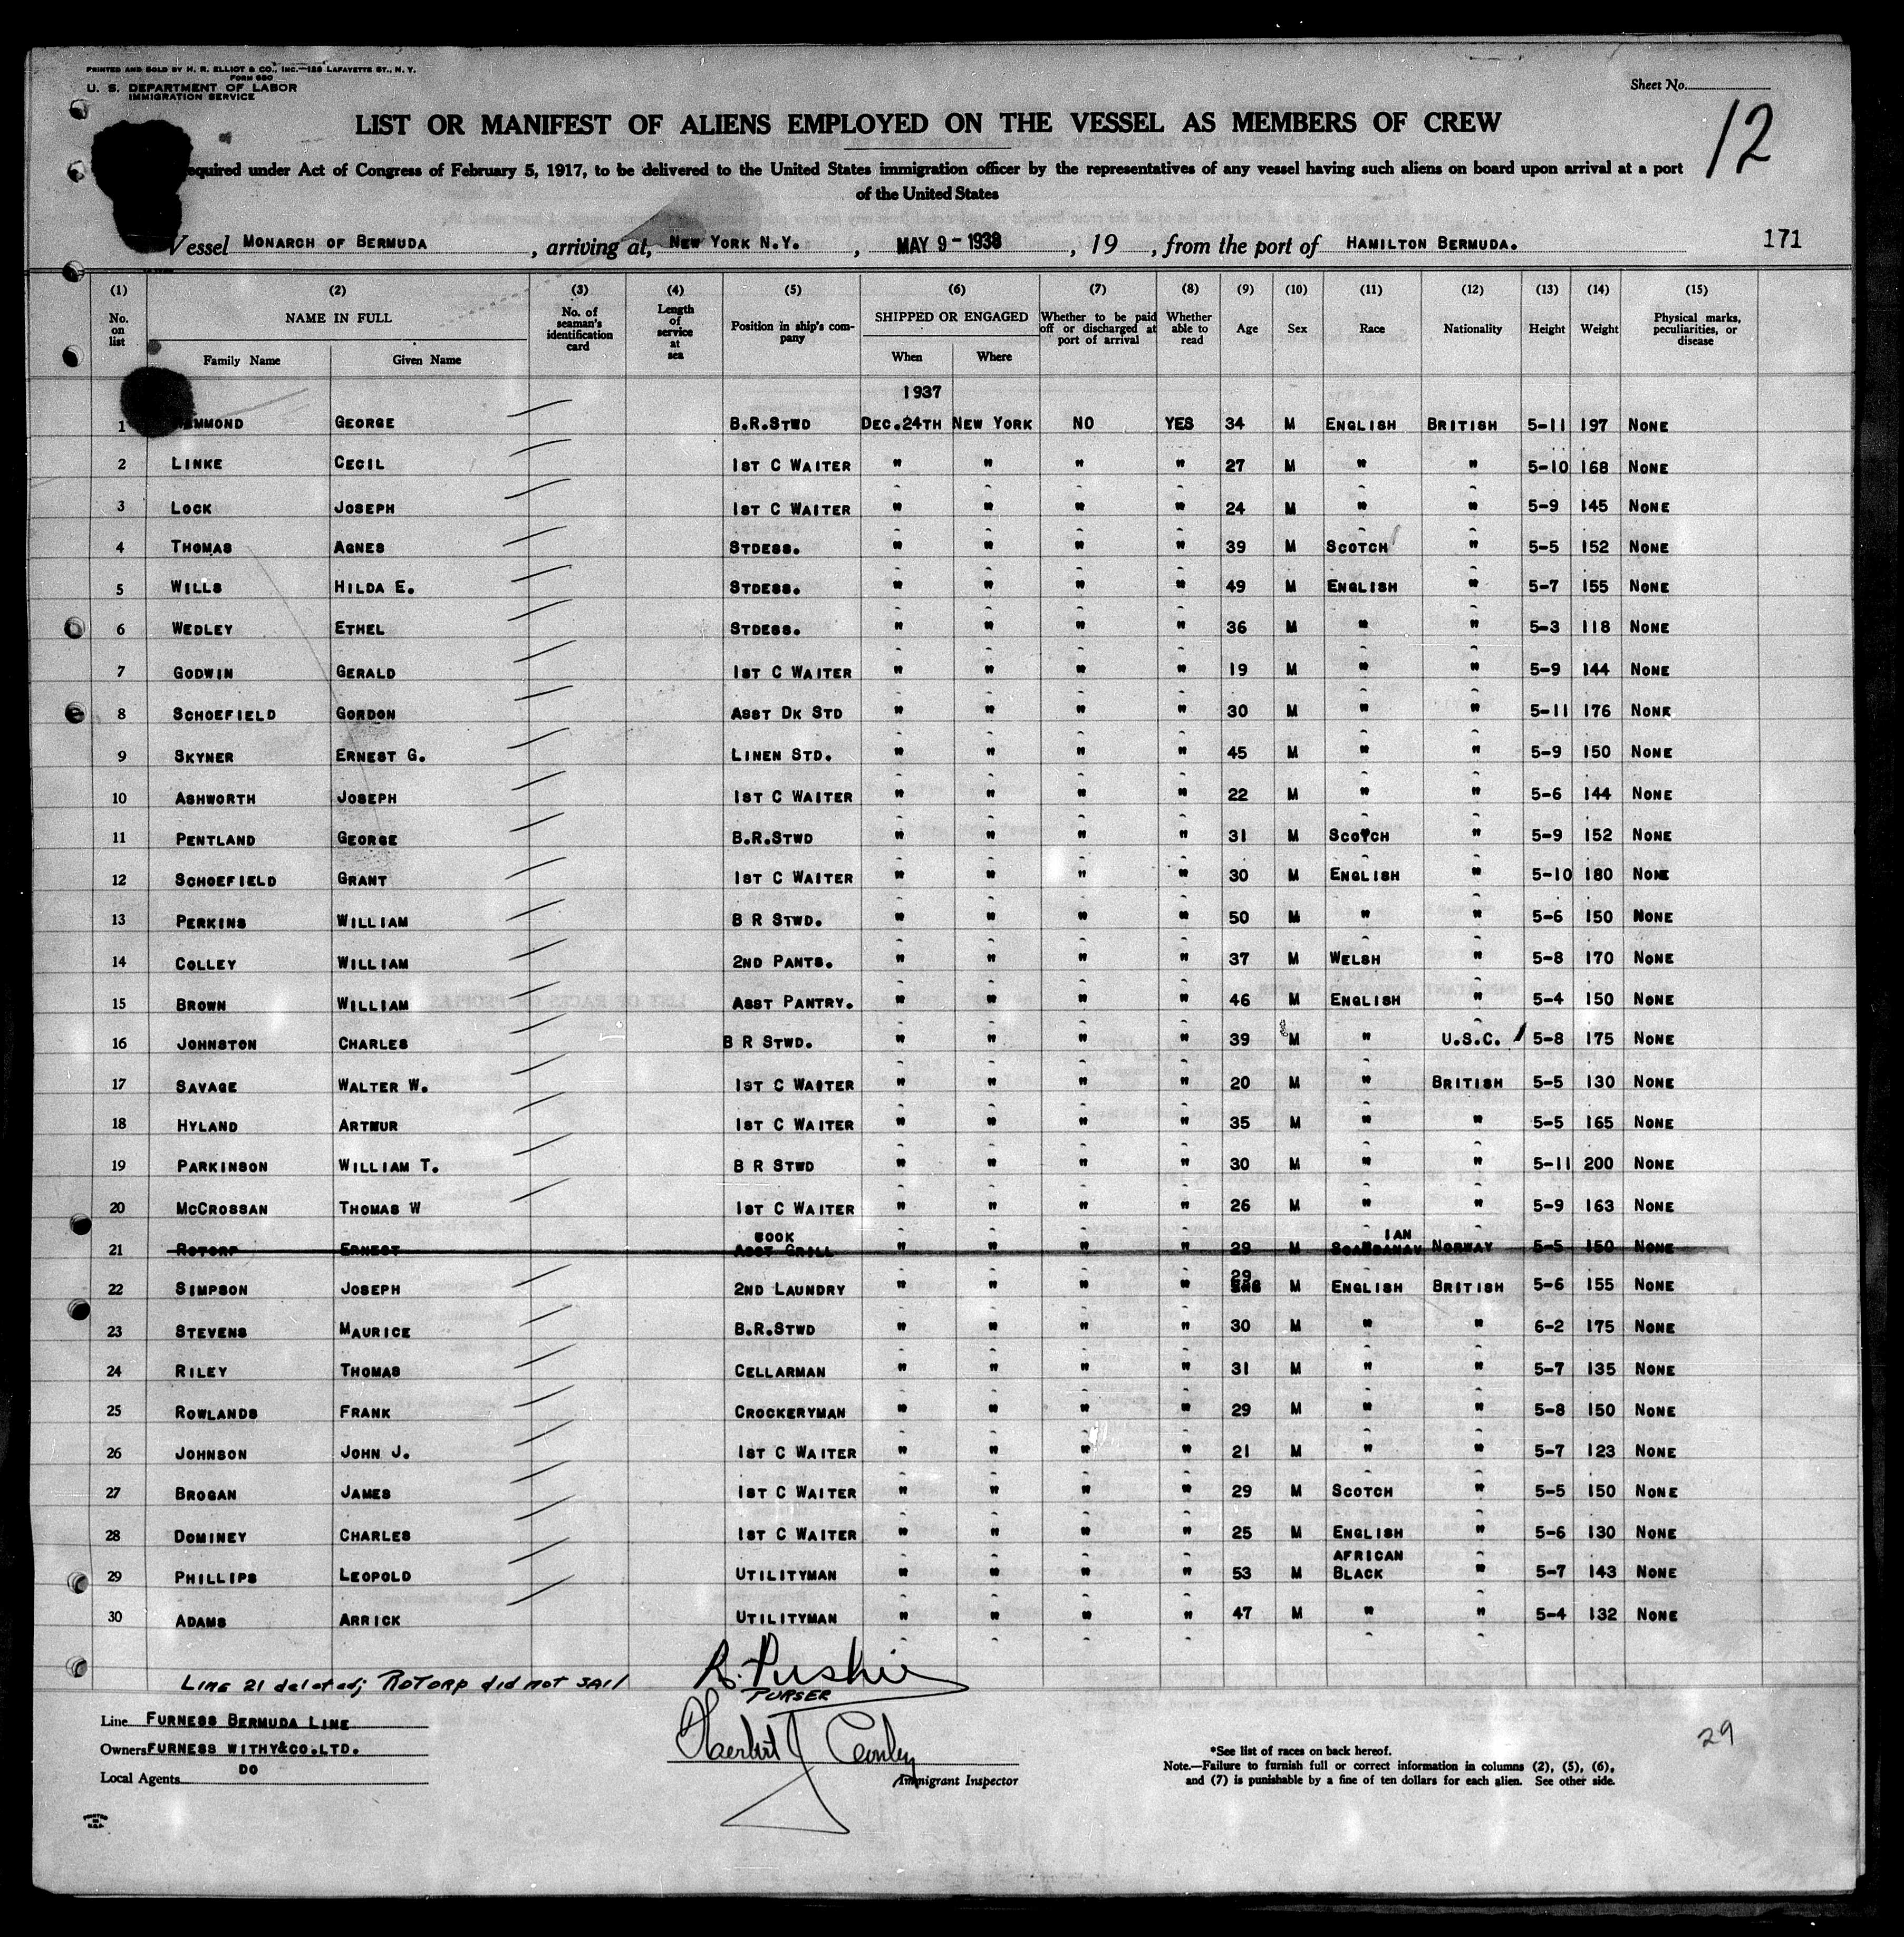 PRINTED AND SOLD BY H. R. ELLIOT & CO., INC.—129 LAFAYETTE ST., N. Y.
FORM 680
U. S. DEPARTMENT OF LABOR
IMMIGRATION SERVICE
Sheet No.
12
LIST OR MANIFEST OF ALIENS EMPLOYED ON THE VESSEL AS MEMBERS OF CREW
equired under Act of Congress of February 5, 1917, to be delivered to the United States immigration officer by the representatives of any vessel having such aliens on board upon arrival at a port
of the United States
Vessel MONARCH OF BERMUDA, arriving at, NEW YORK N.Y., MAY 9 - 1938, 19, from the port of HAMILTON BERMUDA. 171
(1) (2) (3) (4) (5) (6) (7) (8) (9) (10) (11) (12) (13) (14) (15)
No. on list NAME IN FULL No. of seaman's identification card Length of service at sea Position in ship's company SHIPPED OR ENGAGED Whether to be paid off or discharged at port of arrival Whether able to read Age Sex Race Nationality Height Weight Physical marks, peculiarities, or disease
Family Name Given Name When Where
1937
1 MMOND GEORGE B.R.STWD DEC.24TH NEW YORK NO YES 34 M ENGLISH BRITISH 5-11 197 NONE
2 LINKE CECIL 1ST C WAITER " " " " 27 M " " 5-10 168 NONE
3 LOCK JOSEPH 1ST C WAITER " " " " 24 M " " 5-9 145 NONE
4 THOMAS AGNES STDESS. " " " " 39 M SCOTCH " 5-5 152 NONE
5 WILLS HILDA E. STDESS. " " " " 49 M ENGLISH " 5-7 155 NONE
6 WEDLEY ETHEL STDESS. " " " " 36 M " " 5-3 118 NONE
7 GODWIN GERALD 1ST C WAITER " " " " 19 M " " 5-9 144 NONE
8 SCHOEFIELD GORDON ASST DK STD " " " " 30 M " " 5-11 176 NONE
9 SKYNER ERNEST G. LINEN STD. " " " " 45 M " " 5-9 150 NONE
10 ASHWORTH JOSEPH 1ST C WAITER " " " " 22 M " " 5-6 144 NONE
11 PENTLAND GEORGE B.R.STWD " " " " 31 M SCOTCH " 5-9 152 NONE
12 SCHOEFIELD GRANT 1ST C WAITER " " " " 30 M ENGLISH " 5-10 180 NONE
13 PERKINS WILLIAM B R STWD. " " " " 50 M " " 5-6 150 NONE
14 COLLEY WILLIAM 2ND PANTS. " " " " 37 M WELSH " 5-8 170 NONE
15 BROWN WILLIAM ASST PANTRY. " " " " 46 M ENGLISH " 5-4 150 NONE
16 JOHNSTON CHARLES B R STWD. " " " " 39 M " U.S.C. 5-8 175 NONE
17 SAVAGE WALTER W. 1ST C WAITER " " " " 20 M " BRITISH 5-5 130 NONE
18 HYLAND ARTHUR 1ST C WAITER " " " " 35 M " " 5-5 165 NONE
19 PARKINSON WILLIAM T. B R STWD " " " " 30 M " " 5-11 200 NONE
20 MCCROSSAN THOMAS W 1ST C WAITER " " " " 26 M " " 5-9 163 NONE
COOK IAN
21 ROTORP ERNEST ASST GRILL " " " " 29 M SCANDANAV NORWAY 5-5 150 NONE
29
22 SIMPSON JOSEPH 2ND LAUNDRY " " " " M ENGLISH BRITISH 5-6 155 NONE
23 STEVENS MAURICE B.R.STWD " " " " 30 M " " 6-2 175 NONE
24 RILEY THOMAS CELLARMAN " " " " 31 M " " 5-7 135 NONE
25 ROWLANDS FRANK CROCKERYMAN " " " " 29 M " " 5-8 150 NONE
26 JOHNSON JOHN J. 1ST C WAITER " " " " 21 M " " 5-7 123 NONE
27 BROGAN JAMES 1ST C WAITER " " " " 29 M SCOTCH " 5-5 150 NONE
28 DOMINEY CHARLES 1ST C WAITER " " " " 25 M ENGLISH " 5-6 130 NONE
AFRICAN
29 PHILLIPS LEOPOLD UTILITYMAN " " " " 53 M BLACK " 5-7 143 NONE
30 ADAMS ARRICK UTILITYMAN " " " " 47 M " " 5-4 132 NONE
Line 21 deleted; ROTORP did not sail
PURSER
Line FURNESS BERMUDA LINE
Owners FURNESS WITHY&CO.LTD.
Local Agents DO
Immigrant Inspector
29
*See list of races on back hereof.
Note.—Failure to furnish full or correct information in columns (2), (5), (6),
and (7) is punishable by a fine of ten dollars for each alien. See other side.
PRINTED
IN
U.S.A.